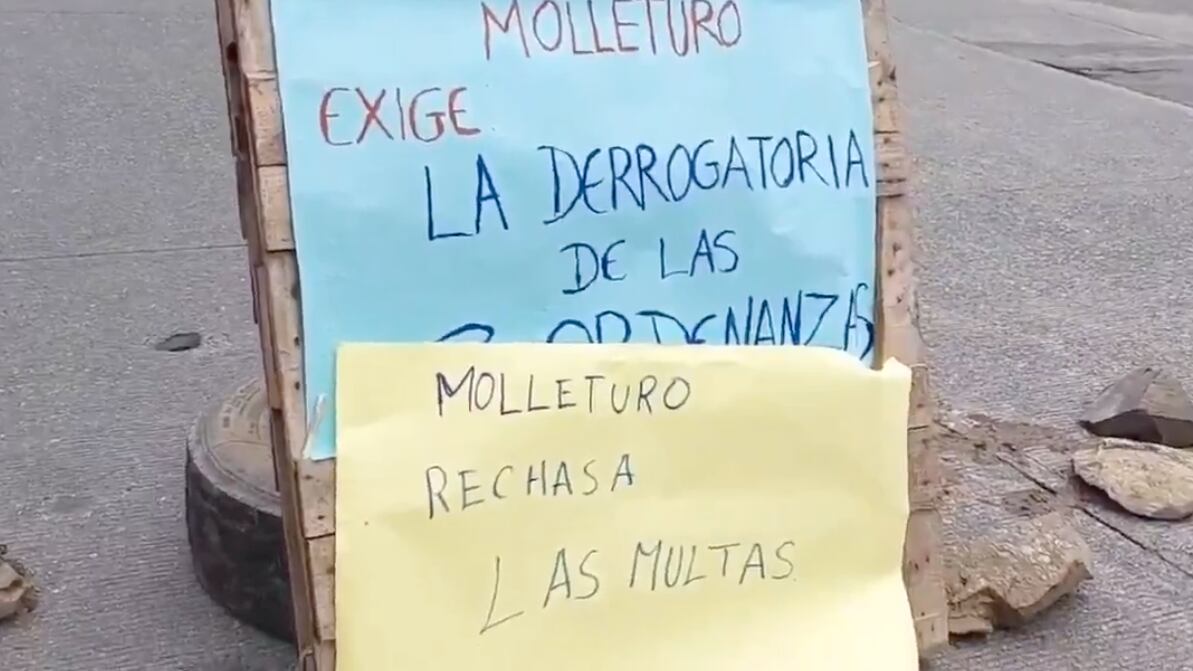 MOLLETURO
EXIGE
LA DERROGATORIA
DE LAS
ORDENANZAS
MOLLETURO
RECHASA
LAS MULTAS